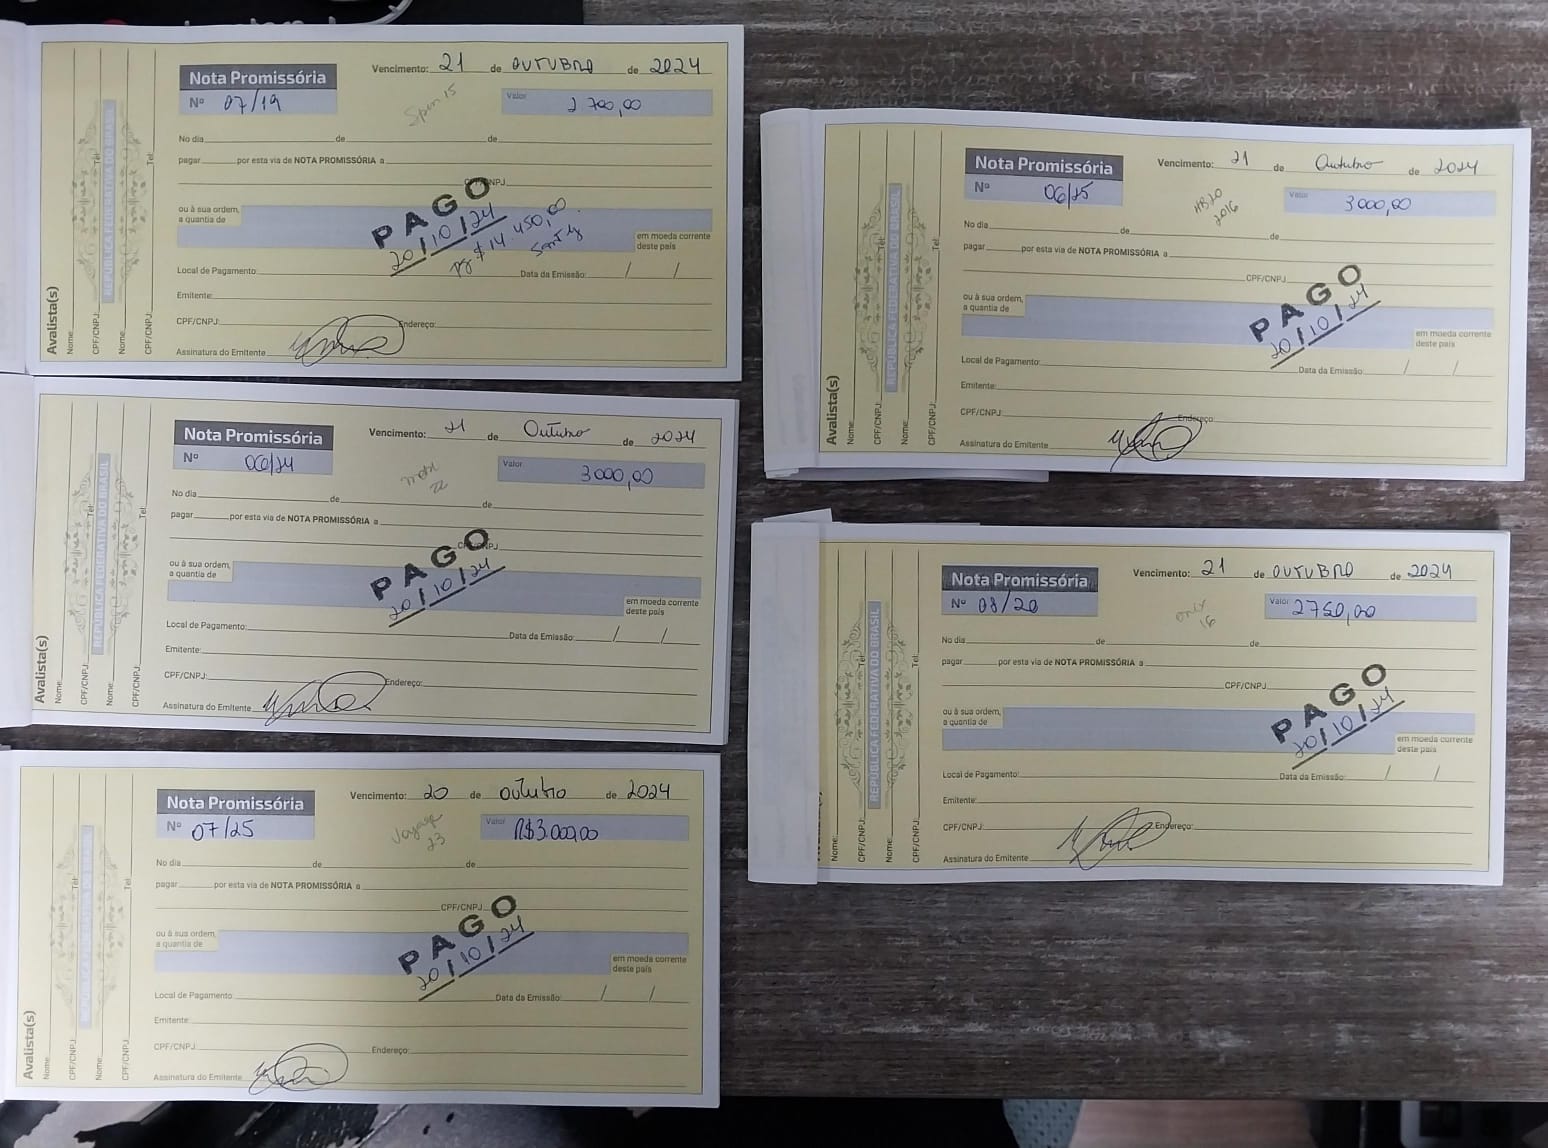 Nota Promissória
Nº 07/19
Vencimento: 21 de OUTUBRO de 2024
Spin 15
Valor 2 700,00
No dia de de
pagar por esta via de NOTA PROMISSÓRIA a
CPF/CNPJ
ou à sua ordem,
a quantia de
em moeda corrente
deste país
PAGO
20/10/24
pg $ 14.450,00
Local de Pagamento: Data da Emissão: / /
Emitente:
CPF/CNPJ: Endereço:
Assinatura do Emitente
Avalista(s)
Nome:
CPF/CNPJ: Tel:
Nome:
CPF/CNPJ: Tel:
REPÚBLICA FEDERATIVA DO BRASIL
Nota Promissória
Nº 06/24
Vencimento: 21 de Outubro de 2024
mobi
22
Valor 3 000,00
No dia de de
pagar por esta via de NOTA PROMISSÓRIA a
CPF/CNPJ
ou à sua ordem,
a quantia de
em moeda corrente
deste país
PAGO
20/10/24
Local de Pagamento: Data da Emissão: / /
Emitente:
CPF/CNPJ: Endereço:
Assinatura do Emitente
Avalista(s)
Nome:
CPF/CNPJ: Tel:
Nome:
CPF/CNPJ: Tel:
REPÚBLICA FEDERATIVA DO BRASIL
Nota Promissória
Nº 07/25
Vencimento: 20 de outubro de 2024
Voyage
23
Valor R$3.000,00
No dia de de
pagar por esta via de NOTA PROMISSÓRIA a
CPF/CNPJ
ou à sua ordem,
a quantia de
em moeda corrente
deste país
PAGO
20/10/24
Local de Pagamento Data da Emissão: / /
Emitente:
CPF/CNPJ: Endereço:
Assinatura do Emitente
Avalista(s)
Nome:
CPF/CNPJ: Tel:
Nome:
CPF/CNPJ: Tel:
REPÚBLICA FEDERATIVA DO BRASIL
Nota Promissória
Nº 06/25
Vencimento: 21 de Outubro de 2024
HB20
2016
Valor 3 000,00
No dia de de
pagar por esta via de NOTA PROMISSÓRIA a
CPF/CNPJ
ou à sua ordem,
a quantia de
em moeda corrente
deste país
PAGO
20/10/24
Local de Pagamento: Data da Emissão: / /
Emitente:
CPF/CNPJ: Endereço:
Assinatura do Emitente
Avalista(s)
Nome:
CPF/CNPJ: Tel:
Nome:
CPF/CNPJ: Tel:
REPÚBLICA FEDERATIVA DO BRASIL
Nota Promissória
Nº 08/20
Vencimento: 21 de OUTUBRO de 2024
onix
16
Valor 2750,00
No dia de de
pagar por esta via de NOTA PROMISSÓRIA a
CPF/CNPJ
ou à sua ordem,
a quantia de
em moeda corrente
deste país
PAGO
20/10/24
Local de Pagamento: Data da Emissão: / /
Emitente:
CPF/CNPJ: Endereço:
Assinatura do Emitente
Nome:
CPF/CNPJ: Tel:
Nome:
CPF/CNPJ: Tel:
REPÚBLICA FEDERATIVA DO BRASIL